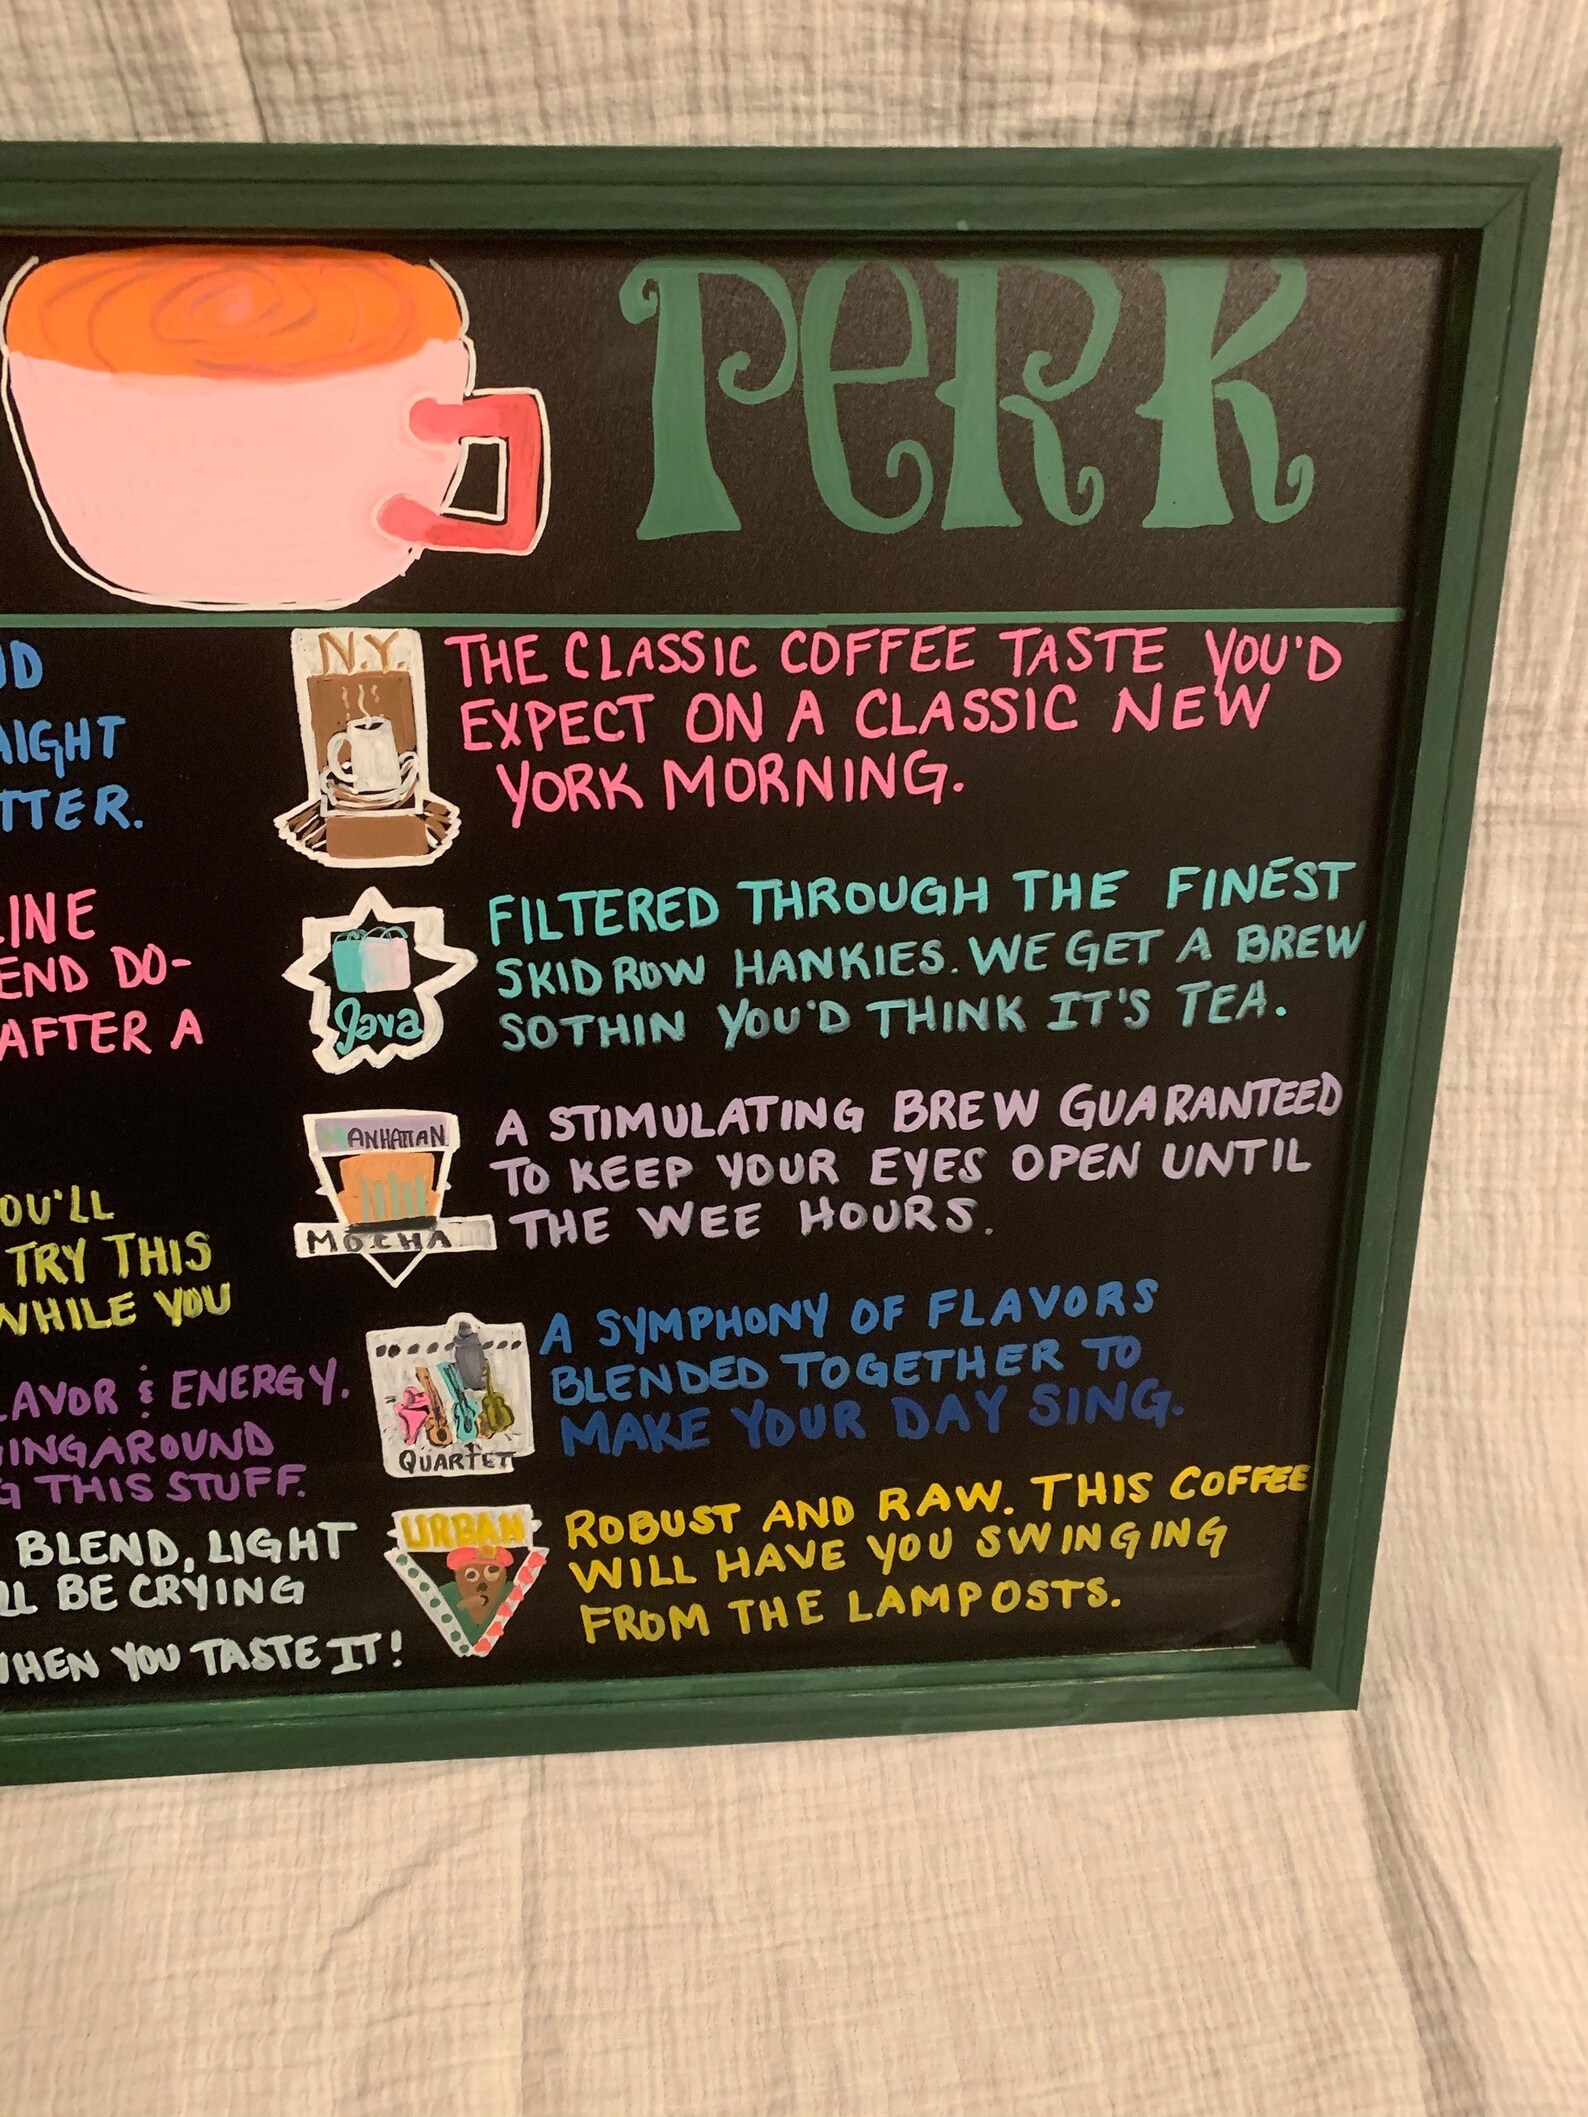 PERK
ND
AIGHT
TTER.
LINE
END DO-
AFTER A
OU'LL
TRY THIS
WHILE YOU
LAVOR & ENERGY.
INGAROUND
G THIS STUFF.
BLEND, LIGHT
LL BE CRYING
WHEN YOU TASTE IT!
N.Y.
THE CLASSIC COFFEE TASTE YOU'D
EXPECT ON A CLASSIC NEW
YORK MORNING.
Java
FILTERED THROUGH THE FINEST
SKID ROW HANKIES. WE GET A BREW
SOTHIN YOU'D THINK IT'S TEA.
MANHATTAN
MOCHA
A STIMULATING BREW GUARANTEED
TO KEEP YOUR EYES OPEN UNTIL
THE WEE HOURS.
QUARTET
A SYMPHONY OF FLAVORS
BLENDED TOGETHER TO
MAKE YOUR DAY SING.
URBAN
ROBUST AND RAW. THIS COFFEE
WILL HAVE YOU SWINGING
FROM THE LAMPOSTS.